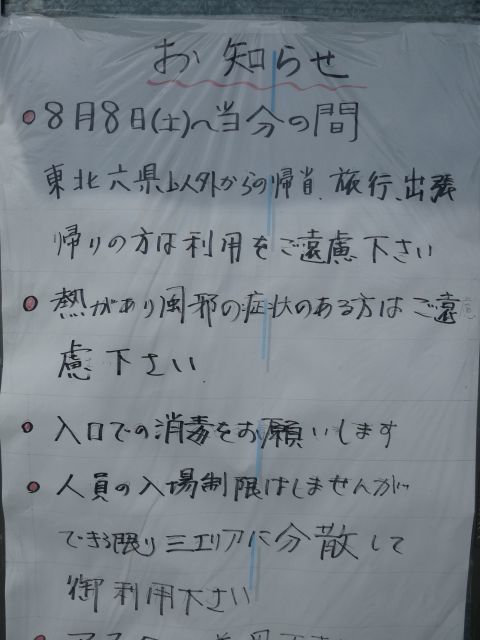 お知らせ
8月8日(土)〜当分の間
東北六県以外からの帰省、旅行、出張
帰りの方は利用をご遠慮下さい
熱があり風邪の症状のある方はご遠
慮下さい
入口での消毒をお願いします
人員の入場制限はしませんが
できる限り三エリアに分散して
御利用下さい